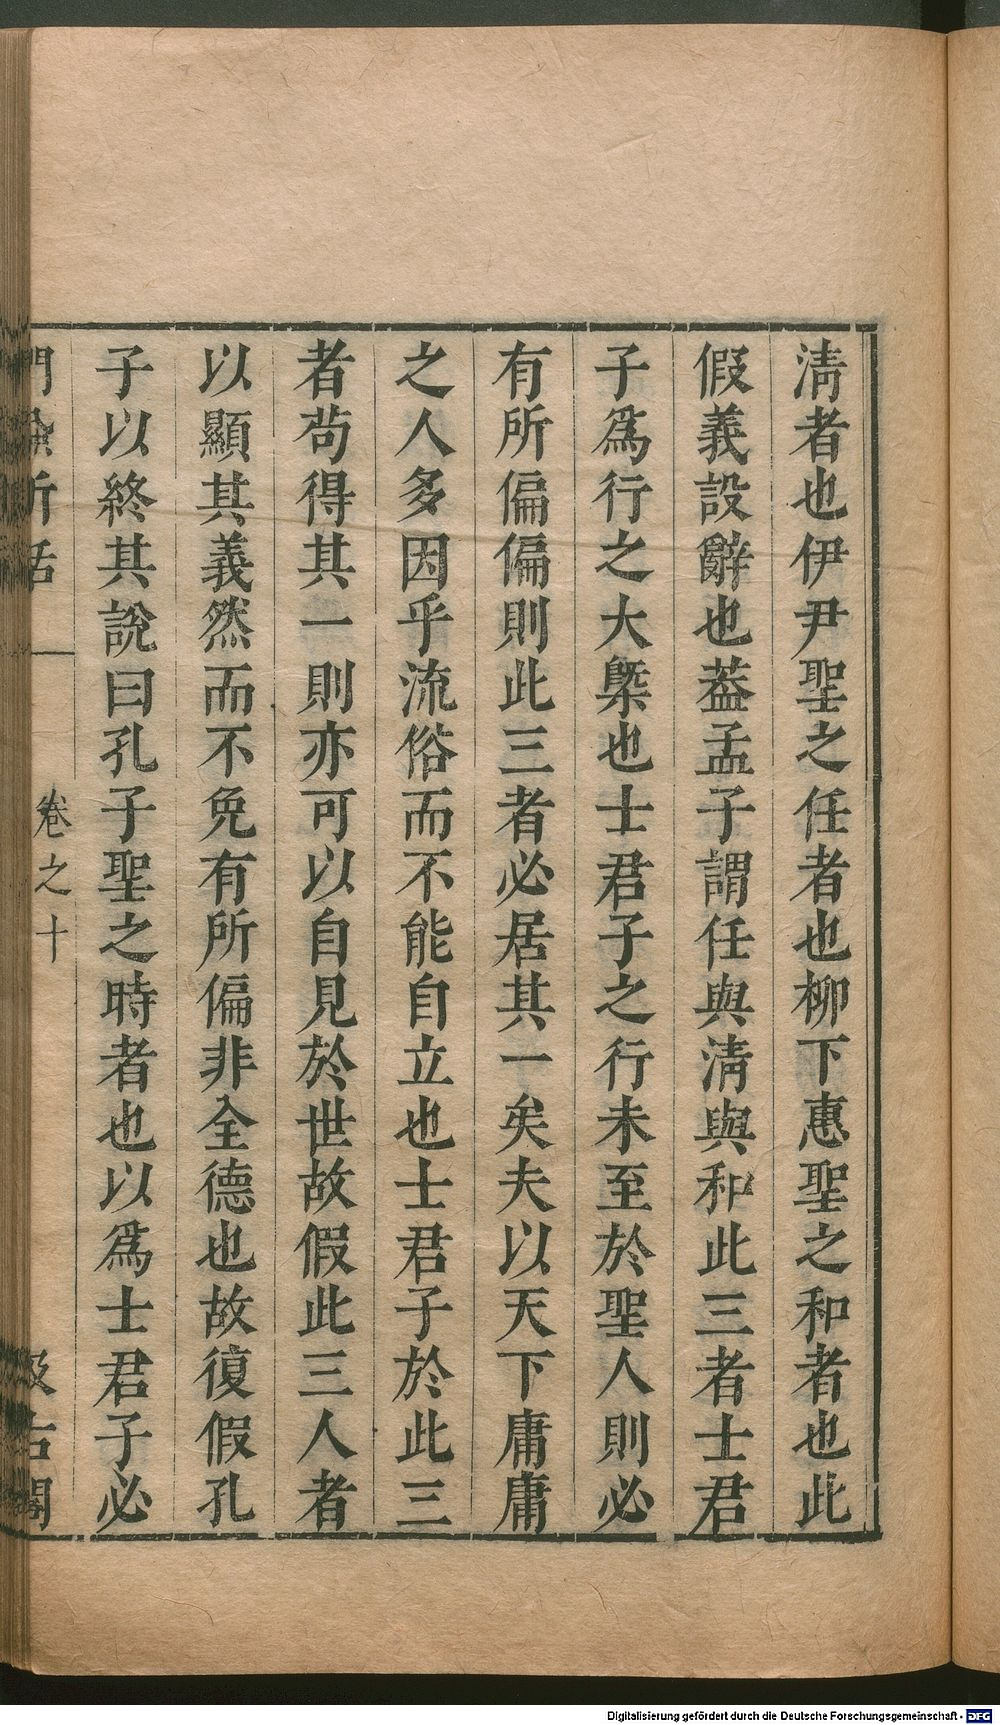 清者也伊尹聖之任者也柳下惠聖之和者也此
假義設辭也葢孟子謂任與清與和此三者士君
子爲行之大槩也士君子之行未至於聖人則必
有所偏偏則此三者必居其一矣夫以天下庸庸
之人多因乎流俗而不能自立也士君子於此三
者茍得其一則亦可以自見於世故假此三人者
以顯其義然而不免有所偏非全德也故復假孔
子以終其說曰孔子聖之時者也以爲士君子必
卷之十
古閣
Digitalisierung gefördert durch die Deutsche Forschungsgemeinschaft - DFG